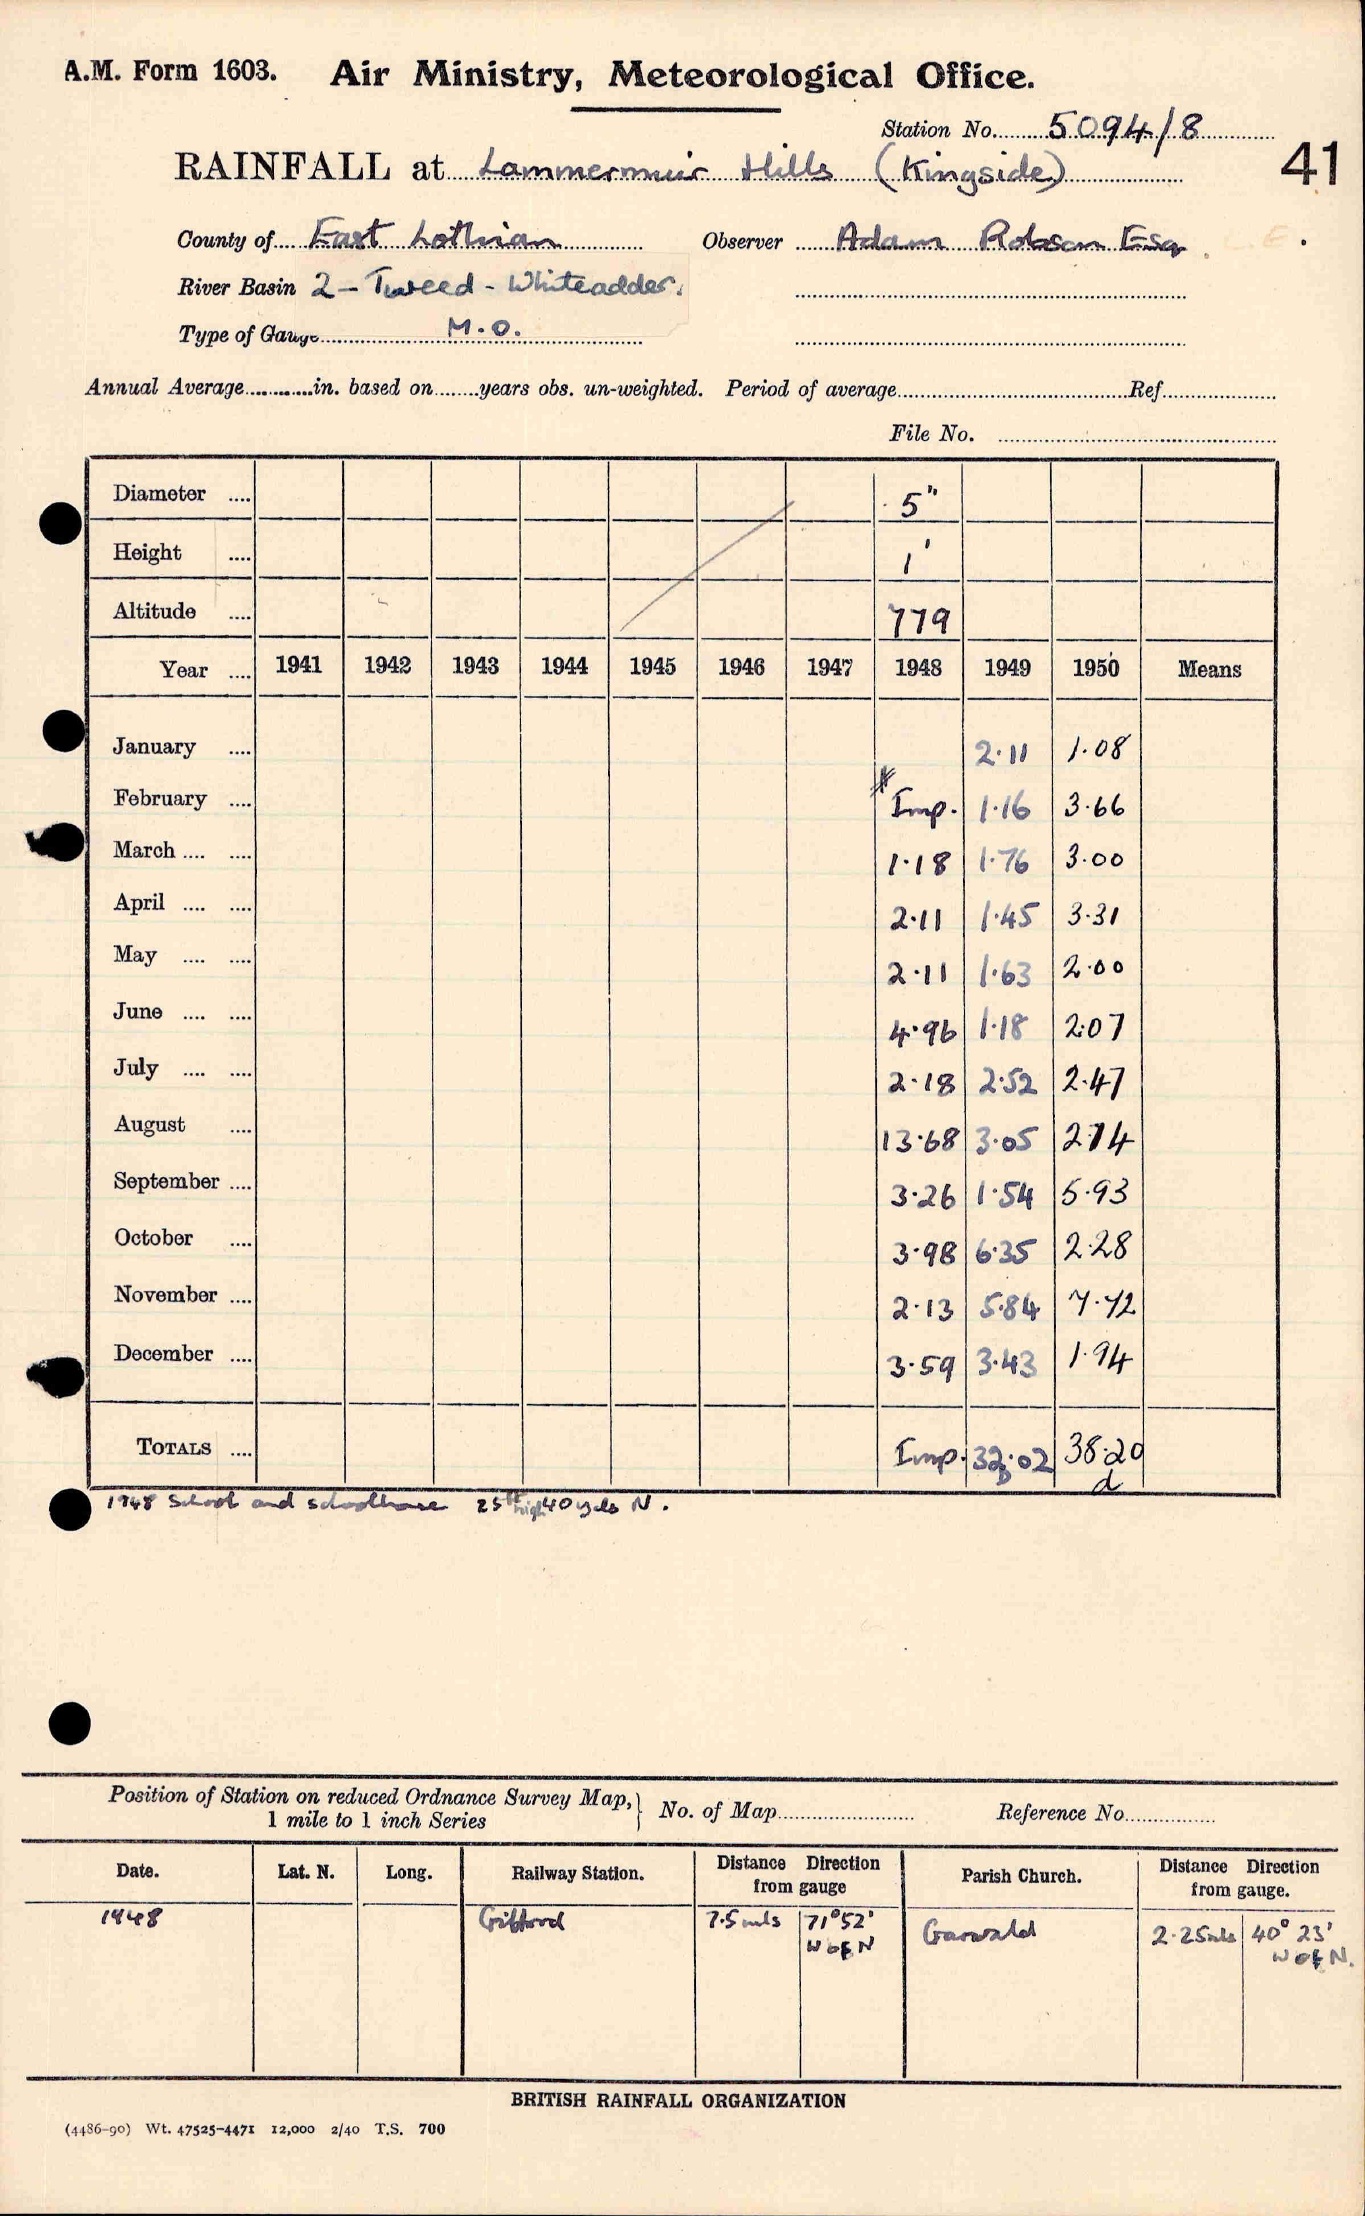 A.M. Form 1603. Air Ministry, Meteorological Office.
Station No. 5094/8
41
RAINFALL at Lammermuir Hills (Kingside)
County of East Lothian Observer Adam Robson Esq.
River Basin 2 - Tweed - Whiteadder.
Type of Gauge M.O.
Annual Average............in. based on........years obs. un-weighted. Period of average........Ref........
File No.
Diameter .... 5"
Height .... 1'
Altitude .... 779
Year .... 1941 1942 1943 1944 1945 1946 1947 1948 1949 1950 Means
January .... 2.11 1.08
February .... Imp. 1.16 3.66
March .... .... 1.18 1.76 3.00
April .... .... 2.11 1.45 3.31
May .... .... 2.11 1.63 2.00
June .... .... 4.96 1.18 2.07
July .... .... 2.18 2.52 2.47
August .... 13.68 3.05 2.74
September .... 3.26 1.54 5.93
October .... 3.98 6.35 2.28
November .... 2.13 5.84 7.72
December .... 3.59 3.43 1.94
TOTALS .... Imp. 32.02 38.20
D d
1948 School and schoolhouse 25ft high 40 yds N.
Position of Station on reduced Ordnance Survey Map,
1 mile to 1 inch Series
No. of Map........ Reference No........
Date. Lat. N. Long. Railway Station. Distance Direction from gauge Parish Church. Distance Direction from gauge.
1948 Gifford 7.5 mls 71° 52' W of N Garvald 2.25 mls 40° 23' W of N.
BRITISH RAINFALL ORGANIZATION
(4486-90) Wt. 47525-4471 12,000 2/40 T.S. 700